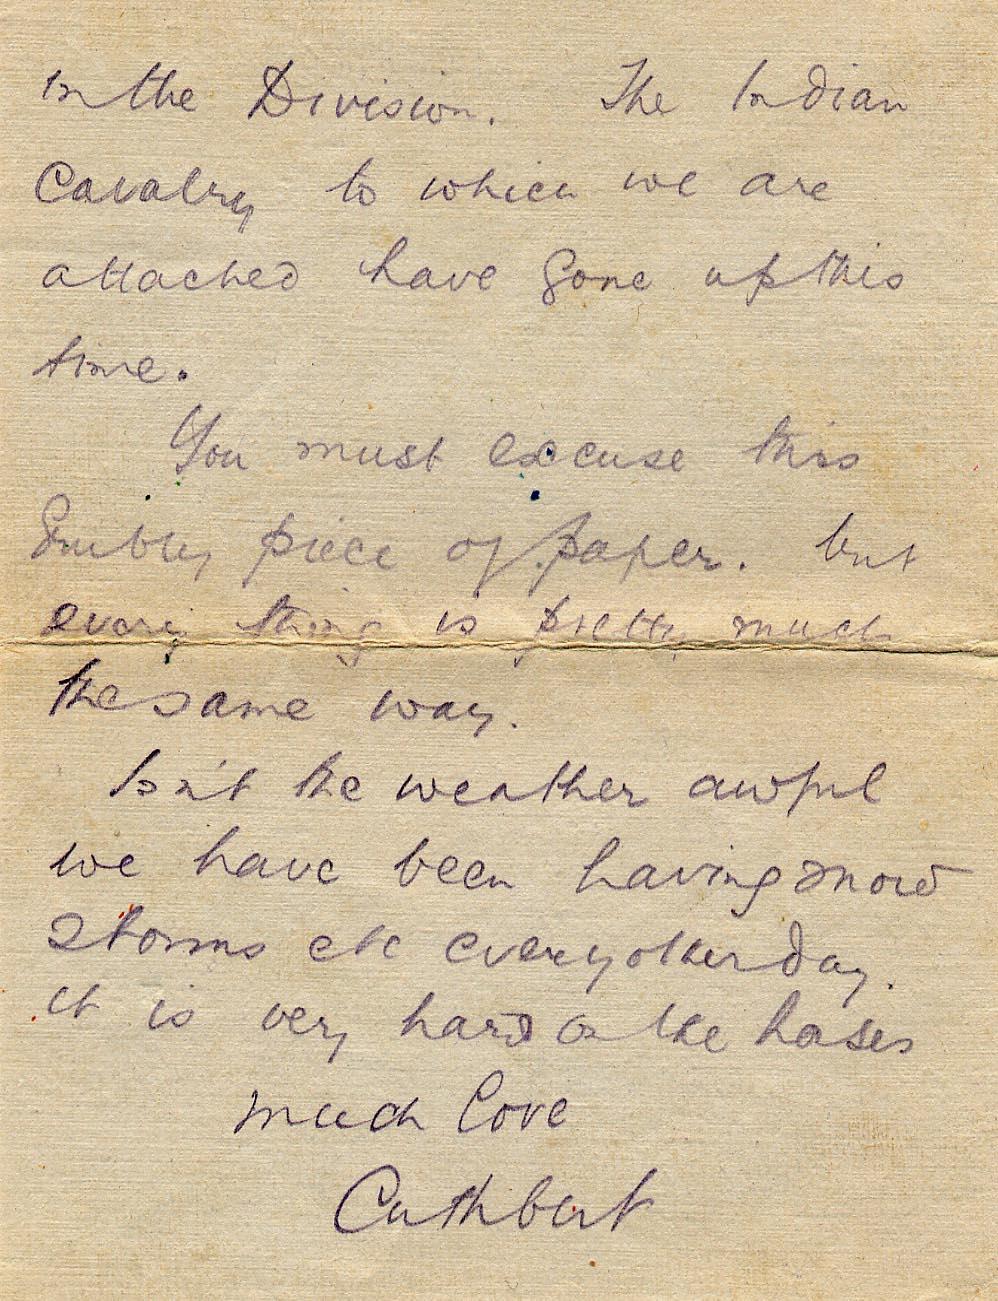 in the Division. The Indian
Cavalry to which we are
attached have gone up this
time.
You must excuse this
grubby piece of paper. but
every thing is pretty much
the same way.
Isn't the weather awful
we have been having snow
storms etc every other day.
it is very hard on the horses
much love
Cuthbert